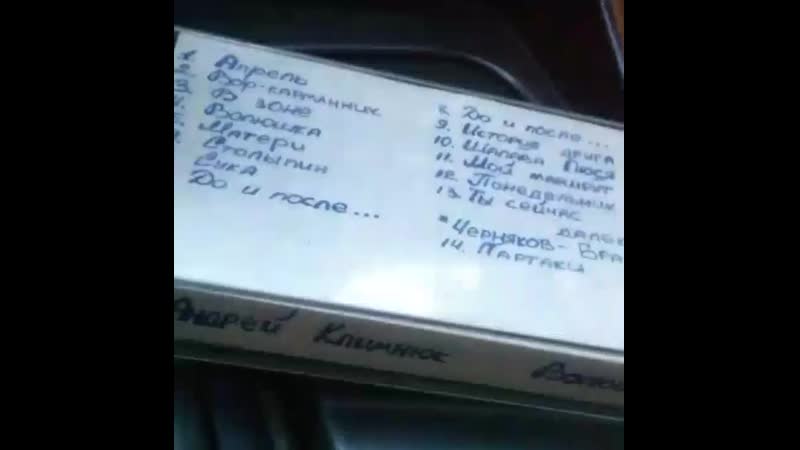 1. Апрель
2. Вор-карманник
3. В зоне
4. Волюшка
5. Матери
Столыпин
Сука
До и после...
8. До и после...
9. История друга
10. Шалава Люся
11. Мой маршрут
12. Понедельник
13. Ты сейчас
далек
*Черняков- Вра
14. Партаки
Андрей Климнюк Волюш